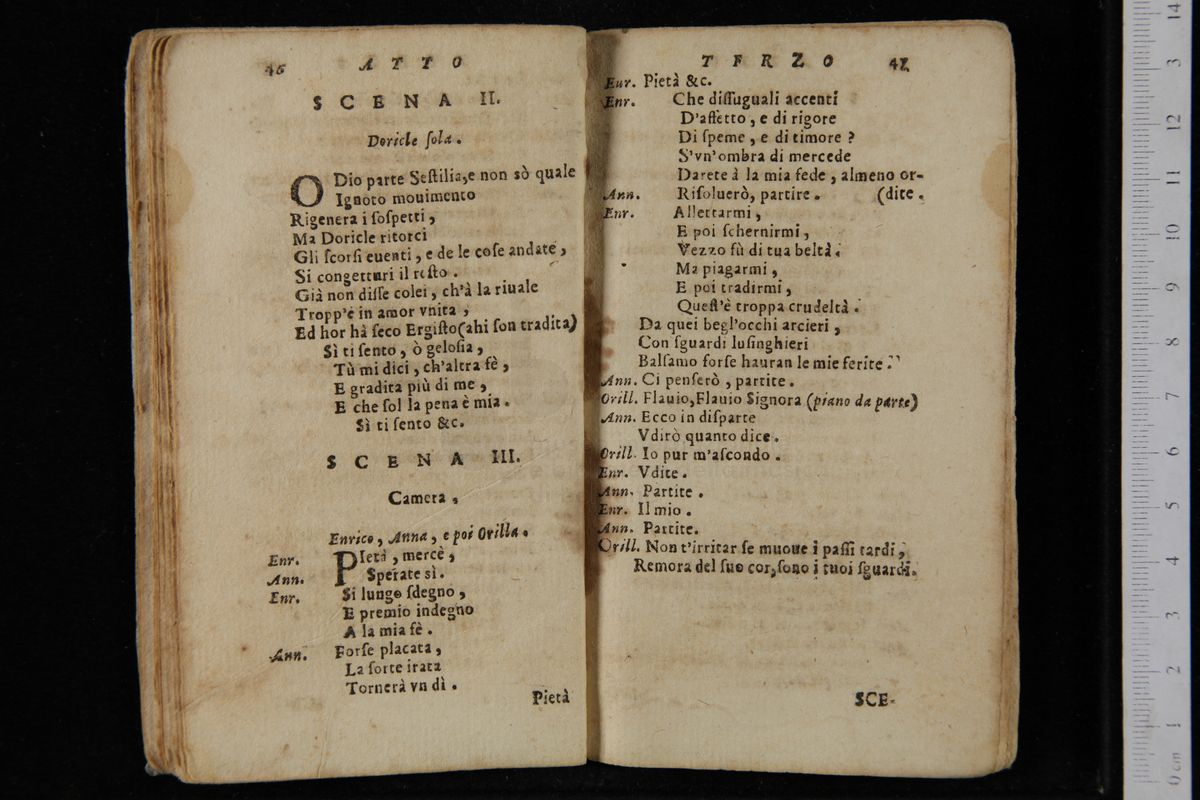 46 ATTO
SCENA II.
Doricle ſola.
ODio parte Seſtilia,e non sò quale
Ignoto mouimento
Rigenera i ſoſpetti,
Ma Doricle ritorci
Gli ſcorſi euenti, e de le coſe andate,
Si congetturi il reſto.
Già non diſſe colei, ch'à la riuale
Tropp'è in amor vnita,
Ed hor hà ſeco Ergiſto(ahi ſon tradita)
Sì ti ſento, ò geloſia,
Tù mi dici, ch'altra fè,
E gradita più di me,
E che ſol la pena è mia.
Sì ti ſento &c.
SCENA III.
Camera.
Enrico, Anna, e poi Orilla.
Enr. PIetà, mercè,
Ann. Sperate sì.
Enr. Si lungo ſdegno,
E premio indegno
A la mia fè.
Ann. Forſe placata,
La ſorte irata
Tornerà vn dì.
Pietà
TERZO 47
Enr. Pietà &c.
Enr. Che diſſuguali accenti
D'affetto, e di rigore
Di ſpeme, e di timore?
S'vn'ombra di mercede
Darete à la mia fede, almeno or-
Ann. Riſoluerò, partire. (dite.
Enr. Allettarmi,
E poi ſchernirmi,
Vezzo fù di tua beltà.
Ma piagarmi,
E poi tradirmi,
Queſt'è troppa crudeltà.
Da quei begl'occhi arcieri,
Con ſguardi luſinghieri
Balſamo forſe hauran le mie ferite.
Ann. Ci penſerò, partite.
Orill. Flauio,Flauio Signora (piano da parte)
Ann. Ecco in diſparte
Vdirò quanto dice.
Orill. Io pur m'aſcondo.
Enr. Vdite.
Ann. Partite.
Enr. Il mio.
Ann. Partite.
Orill. Non t'irritar ſe muoue i paſſi tardi,
Remora del ſuo cor,ſono i tuoi ſguardi.
SCE-
14
3
12
11
10
9
8
7
6
5
4
3
2
1
0 cm